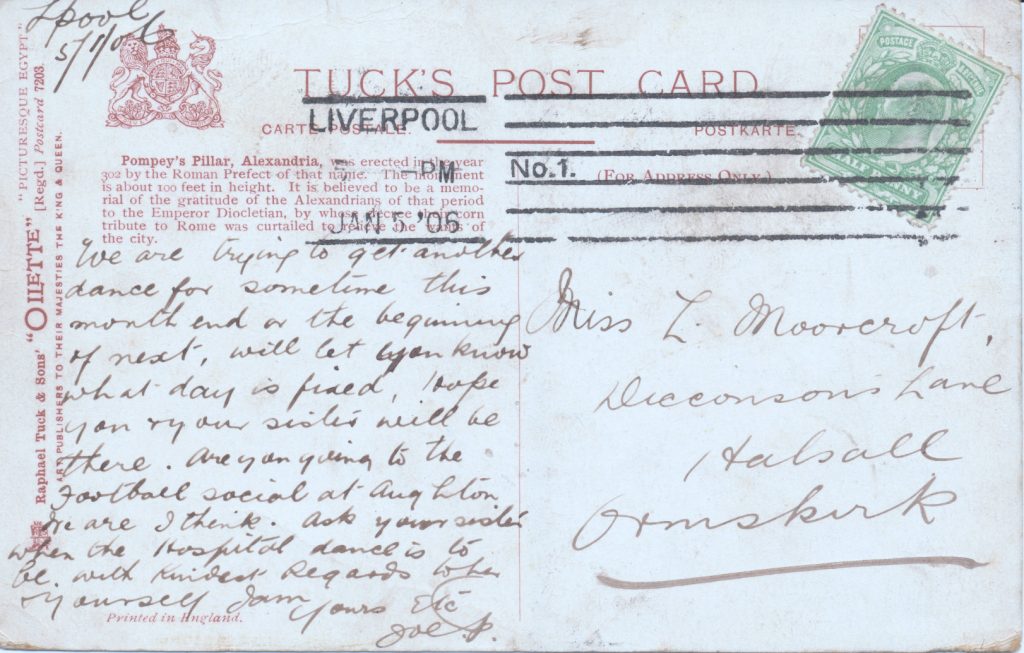 L'pool
5/1/06
TUCK'S POST CARD
CARTE POSTALE.
POSTKARTE.
(FOR ADDRESS ONLY.)
LIVERPOOL
PM
No.1.
JAN 5 '06
POSTAGE
HALFPENNY
"PICTURESQUE EGYPT"
Raphael Tuck & Sons' "OILETTE" [Regd.] Postcard 7203.
ART PUBLISHERS TO THEIR MAJESTIES THE KING & QUEEN.
Pompey's Pillar, Alexandria, was erected in the year
302 by the Roman Prefect of that name. The monument
is about 100 feet in height. It is believed to be a memo-
rial of the gratitude of the Alexandrians of that period
to the Emperor Diocletian, by whose decree the corn
tribute to Rome was curtailed to relieve the wants of
the city.
We are trying to get another
dance for sometime this
month end or the beginning
of next, will let you know
what day is fixed, hope
you & your sister will be
there. Are you going to the
Football social at Aughton
We are I think. Ask your sister
when the Hospital dance is to
be. with Kindest Regards to her
& yourself I am
Yours Etc
Joe P.
Printed in England.
Miss L. Moorcroft,
Dicconsons Lane
Halsall
Ormskirk